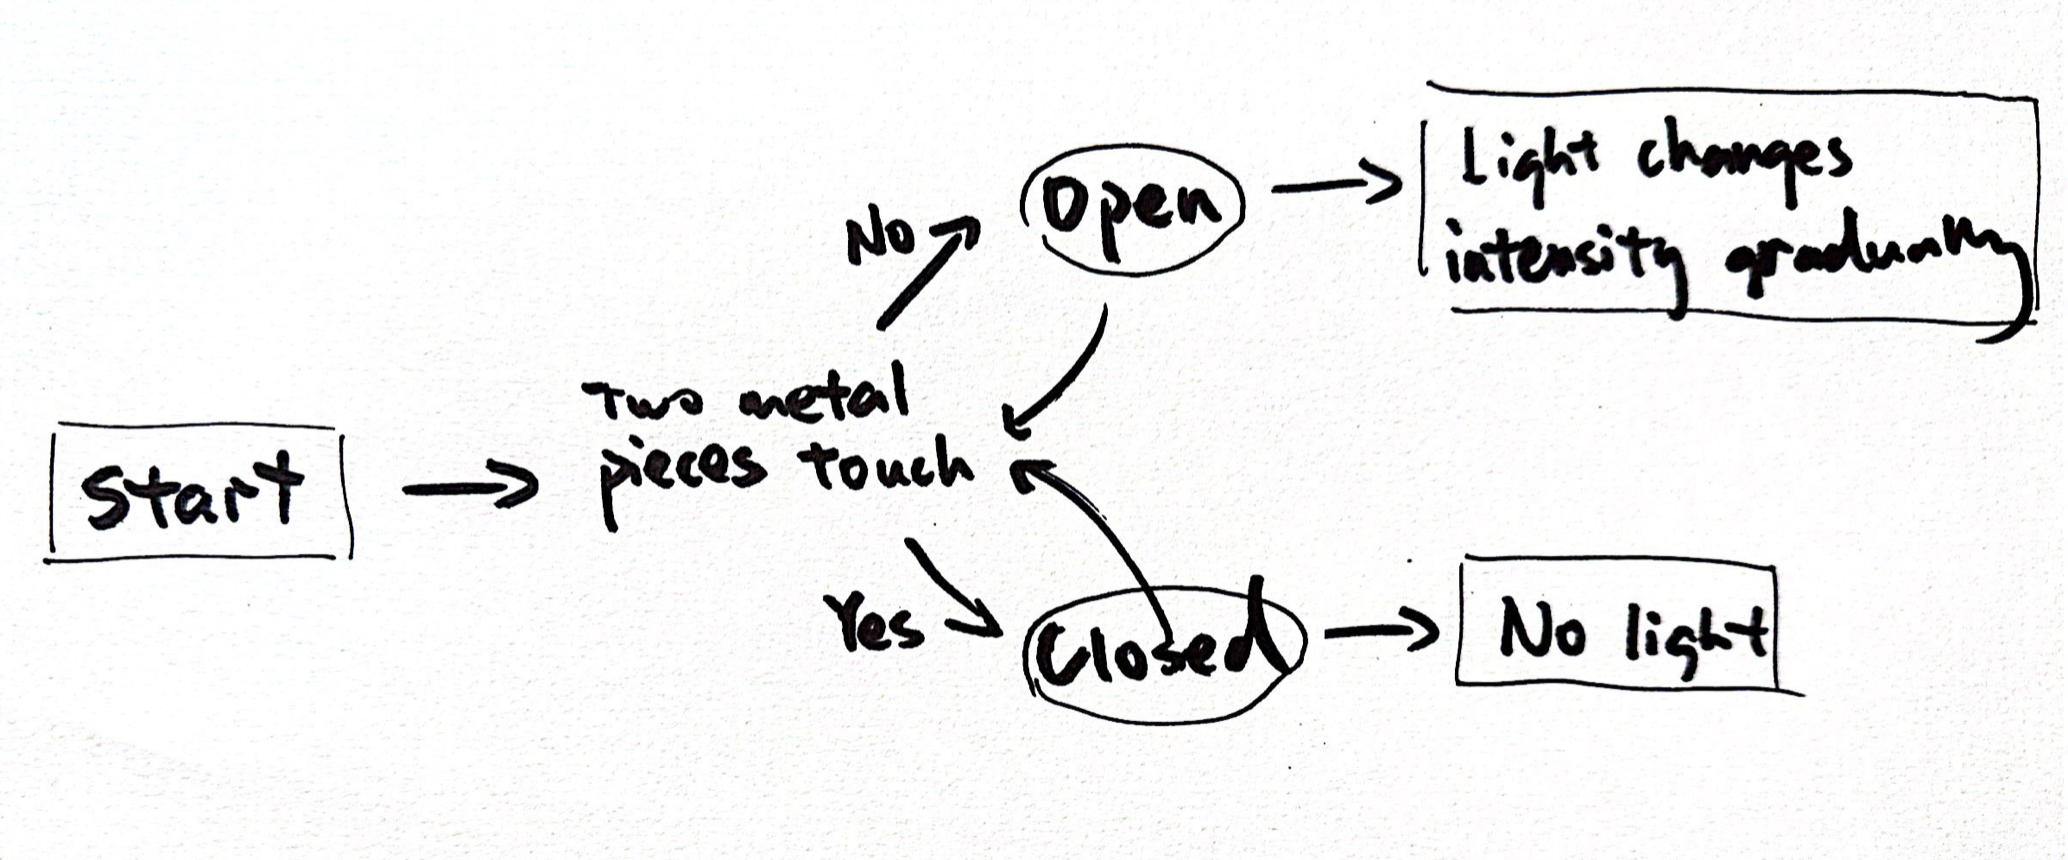 Start
Two metal
pieces touch
No
Open
Light changes
intensity gradually
Yes
Closed
No light